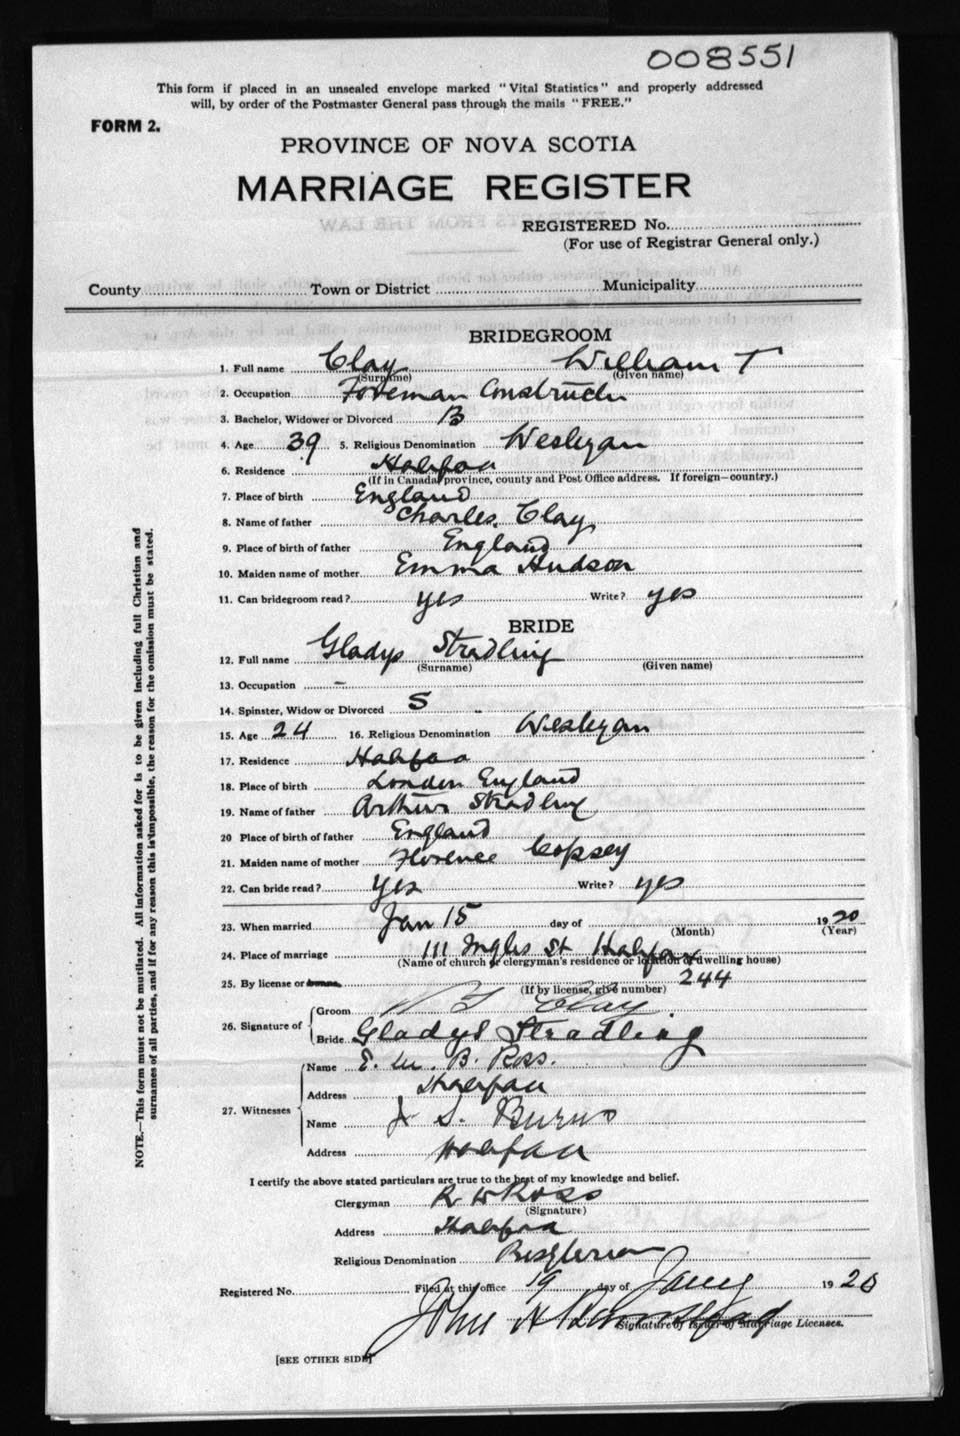 008551
This form if placed in an unsealed envelope marked "Vital Statistics" and properly addressed
will, by order of the Postmaster General pass through the mails "FREE."
FORM 2.
PROVINCE OF NOVA SCOTIA
MARRIAGE REGISTER
REGISTERED No.
(For use of Registrar General only.)
County Town or District Municipality
BRIDEGROOM
1. Full name Clay William T
(Surname) (Given name)
2. Occupation Foreman Construction
3. Bachelor, Widower or Divorced B
4. Age 39 5. Religious Denomination Wesleyan
6. Residence Halifax
(If in Canada, province, county and Post Office address. If foreign—country.)
7. Place of birth England
8. Name of father Charles Clay
9. Place of birth of father England
10. Maiden name of mother Emma Hudson
11. Can bridegroom read? yes Write? yes
BRIDE
12. Full name Gladys Stradling
(Surname) (Given name)
13. Occupation –
14. Spinster, Widow or Divorced S
15. Age 24 16. Religious Denomination Wesleyan
17. Residence Halifax
18. Place of birth London England
19. Name of father Arthur Stradling
20 Place of birth of father England
21. Maiden name of mother Florence Copsey
22. Can bride read? yes Write? yes
23. When married Jan 15 day of 1920
(Month) (Year)
24. Place of marriage 111 Inglis St Halifax
(Name of church or clergyman's residence or location of dwelling house)
25. By license or banns 244
(If by license, give number)
26. Signature of Groom W T Clay
Bride Gladys Stradling
27. Witnesses Name E. M. B. Ross.
Address Halifax
Name J. S. Burns
Address Halifax
I certify the above stated particulars are true to the best of my knowledge and belief.
Clergyman R W Ross
(Signature)
Address Halifax
Religious Denomination Presbyterian
Registered No. Filed at this office 19 day of Jany 1920
John A
Signature of Issuer of Marriage Licenses.
[SEE OTHER SIDE]
NOTE.—This form must not be mutilated. All information asked for is to be given including full Christian and
surnames of all parties, and if for any reason this is impossible, the reason for the omission must be stated.